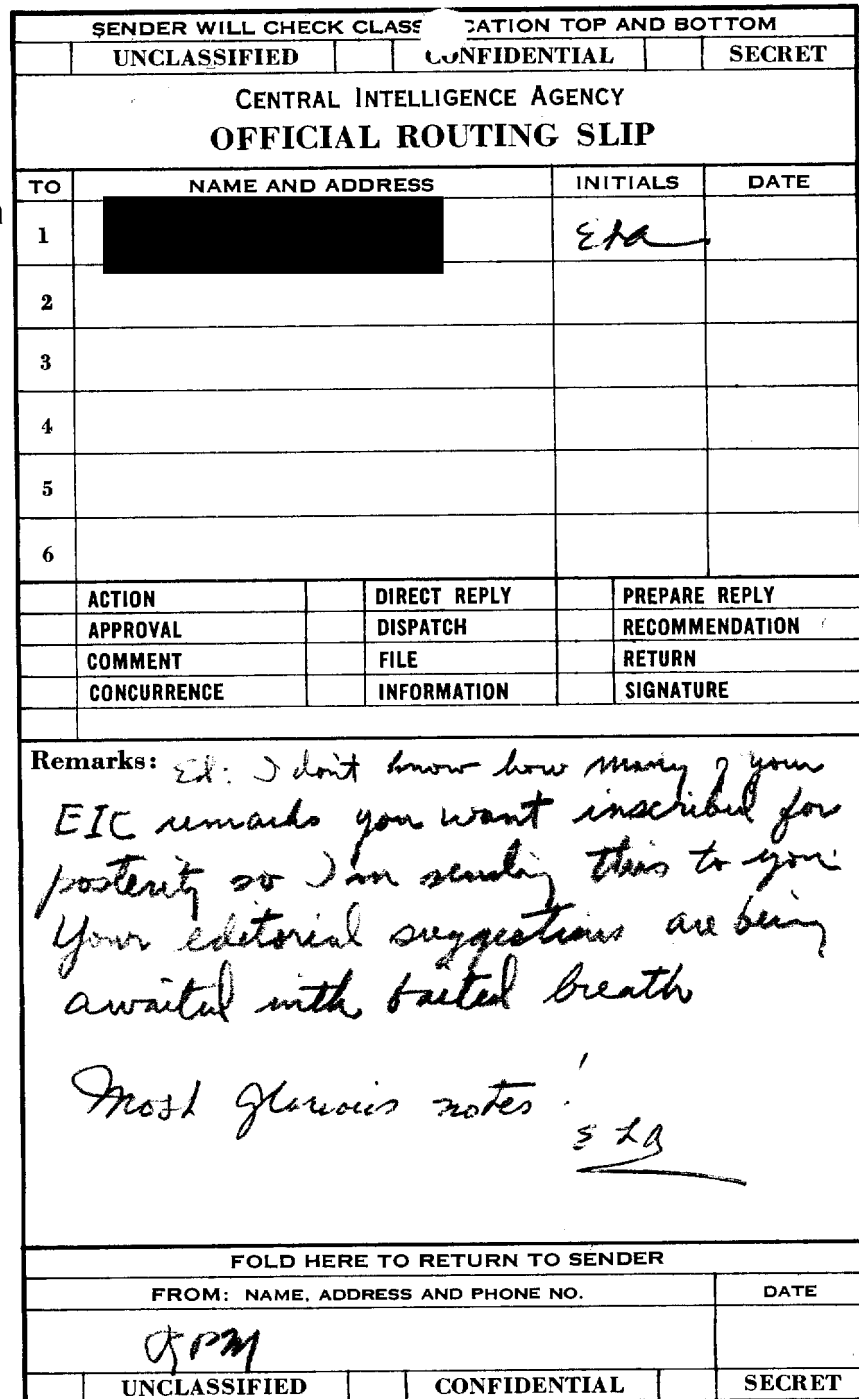 SENDER WILL CHECK CLASS CATION TOP AND BOTTOM
UNCLASSIFIED CONFIDENTIAL SECRET
CENTRAL INTELLIGENCE AGENCY
OFFICIAL ROUTING SLIP
TO NAME AND ADDRESS INITIALS DATE
1 ELA
2
3
4
5
6
ACTION DIRECT REPLY PREPARE REPLY
APPROVAL DISPATCH RECOMMENDATION
COMMENT FILE RETURN
CONCURRENCE INFORMATION SIGNATURE
Remarks: Ed: I don't know how many of your
EIC remarks you want inscribed for
posterity so I'm sending this to you.
Your editorial suggestions are being
awaited with baited breath
Most glorious notes!
ELA
FOLD HERE TO RETURN TO SENDER
FROM: NAME, ADDRESS AND PHONE NO. DATE
UNCLASSIFIED CONFIDENTIAL SECRET